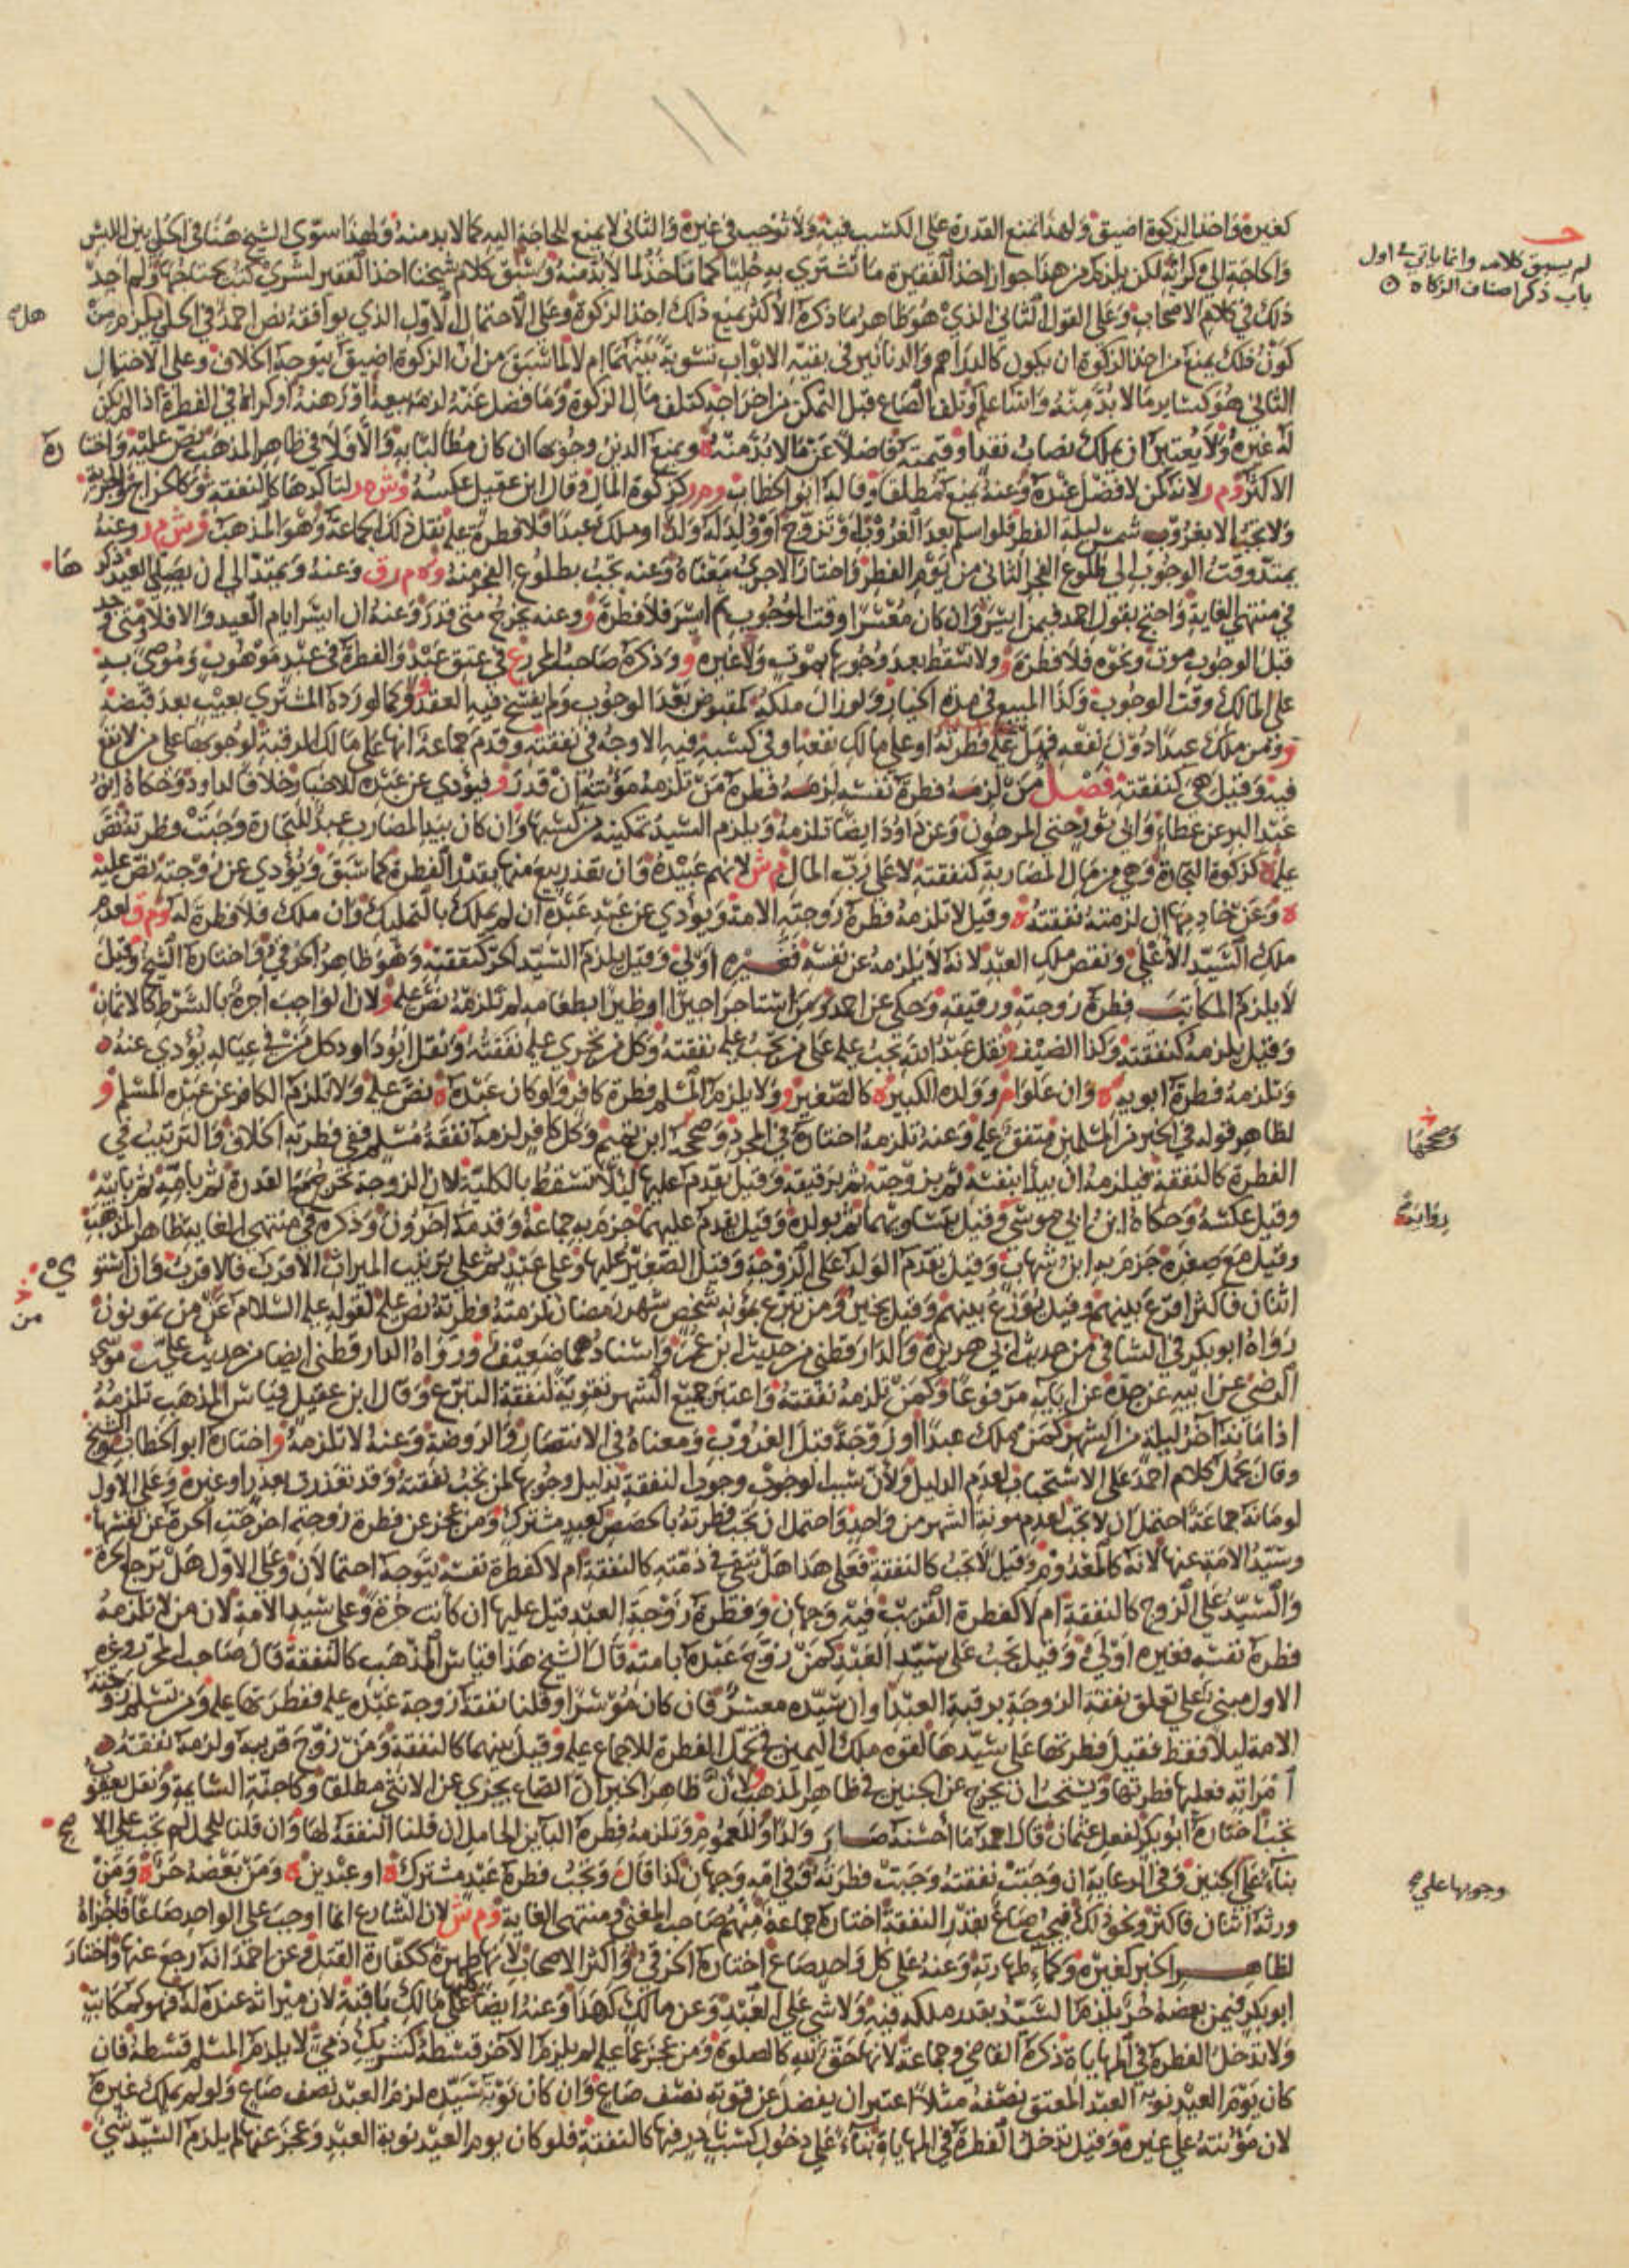 كغيره وأخذ الزكوة أضيق ولهذا تمنع القدرة على الكسب فيه ولا توجب في غيره والثاني لا يمنع للحاجة إليه كما لا بد منه ولهذا سوى الشيخ هنا في الحلي بين اللبس
والحاجة إلى كرائه لكن يلزم من هذا جواز أخذ الفقيرة ما تشتري به حليا كما تأخذ لما لا بد منه وسبق كلام شيخنا أخذ الفقير لشرى كتب يحتاجها ولم أجد
ذلك في كلام الأصحاب وعلى القول الثاني الذي هو ظاهر ما ذكره الأكثر يمنع ذلك أخذ الزكوة وعلى الاحتمال الأول الذي يوافقه نص أحمد في الحلي يلزم من
كون ذلك يمنع من أخذ الزكوة أن يكون كالدراهم والدنانير في بقية الأبواب تسوية بينهما أم لا لما سبق من أن الزكوة أضيق يتوجه الخلاف وعلى الاحتمال
الثاني هو كسائر ما لا بد منه والله أعلم وتلف الصاع قبل التمكن من إخراجه كتلف مال الزكوة وما فضل عنه لزمه بيعه أو رهنه أو كراؤه في الفطرة إذا لم يكن
له غيره ولا يعتبر أن يملك نصاب نقد أو قيمته فاضلا عن ما لا بد منه ه ويمنع الدين وجوبها إن كان مطالبا به وإلا فلا في ظاهر المذهب نص عليه واختاره
الأكثر وم ر لأنه كمن لا فضل عنده وعنه يمنع مطلقا وقاله أبو الخطاب وم ر كزكوة المال وقال ابن عقيل عكسه وش م ر لتأكدها كالنفقة وكالخراج والجزية
ولا تجب إلا بغروب شمس ليلة الفطر فلو أسلم بعد الغروب أو تزوج أو ولد له ولد أو ملك عبدا فلا فطرة عليه نقل ذلك الجماعة وهو المذهب وش م ر وعنه
يمتد وقت الوجوب إلى طلوع الفجر الثاني من يوم الفطر واختار الآجري معناه وعنه تجب بطلوع الفجر منه وه م ر ق وعنه ويمتد إلى أن يصلى العيد ذكرها
في منتهى الغاية واحتج بقول أحمد فيمن أيسر وإن كان معسرا وقت الوجوب ثم أيسر فلا فطرة و وعنه يخرج متى قدر وعنه إن أيسر أيام العيد وإلا فلا ومتى وجد
قبل الوجوب موت ونحوه فلا فطرة و ولا تسقط بعد وجوبها بموت ولا غيره و وذكره صاحب المحرر ع في عتق عبد والفطرة في عبد موهوب وموصى به
على المالك وقت الوجوب وكذا المبيع في مدة الخيار ولو زال ملكه كمقبوض بعد الوجوب ولم يفسخ فيه العقد و وكما لو رده المشتري بعيب بعد قبضه
و ومن ملك عبدا دون نفعه فهل عليه فطرته أو على مالك نفعه أو في كسبه فيه الأوجه في نفقته وقدم جماعة أنها على مالك الرقبة لوجوبها على من لا نفع
فيه وقيل هي كنفقته فصل من لزمه فطرة نفسه لزمه فطرة من تلزمه مؤنته إن قدر و فيؤدي عن عبده للأخبار وخلافا لداود وحكاه ابن
عبد البر عن عطاء وأبي ثور حتى المرهون وعن داود أيضا تلزمه ويلزم السيد تمكينه من كسبها وإن كان بيد المضارب عبد للتجارة وجبت فطرته نص
عليه ه كزكوة التجارة وهي من مال المضاربة كنفقته لا على رب المال م ش لأنهم عبيده وإن تعذر بيع منها بقدر الفطرة كما سبق ويؤدي عن زوجته نص عليه
ه وعن خادمها إن لزمته نفقته ه وقيل لا تلزمه فطرة زوجته الأمة ويؤدي عن عبد عبده إن لم يملك بالتمليك وإن ملك فلا فطرة له وم ق لعدم
ملك السيد الأعلى ونقص ملك العبد لأنه لا يلزمه عن نفسه فغيره أولى وقيل يلزم السيد الحر كنفقته وهو ظاهر الخرقي واختاره الشيخ وقيل
لا يلزم المكاتب فطرة زوجته ورقيقه وحكي عن أحمد ومن استأجر أجيرا أو ظئرا بطعامه لم تلزمه نص عليه و لأن الواجب أجرة بالشرط كالأثمان
وقيل يلزمه كنفقته وكذا الضيف و نقل عبد الله تجب عليه على من تجب عليه نفقته وكل من تجري عليه نفقته ونقل أبو داود كل من في عياله يؤدي عنه ه
وتلزمه فطرة أبويه ه وإن علوا م و وولده الكبير ه كالصغير و ولا يلزم المسلم فطرة كافر ولو كان عبده ه نص عليه ولا تلزم الكافر عن عبده المسلم و
لظاهر قوله في الخبر من المسلمين متفق عليه وعنه تلزمه اختاره في المجرد وصححه ابن تميم وكل كافر لزمه نفقة مسلم ففي فطرته الخلاف والترتيب في
الفطرة كالنفقة فيلزمه أن يبدأ بنفسه ثم بزوجته ثم برقيقه وقيل يقدم عليها لئلا تسقط بالكلية لأن الزوجة تخرجها مع القدرة ثم بأمه ثم بأبيه
وقيل عكسه وحكاه ابن أبي موسى وقيل بتساويهما ثم بولده وقيل يقدم عليهما جزم به جماعة وقدمه آخرون وذكره في منتهى الغاية بظاهر المذهب
وقيل مع صغره جزم به ابن شهاب وقيل يقدم الولد على الزوجة وقيل الصغير عليها وعلى عبد ثم على ترتيب الميراث الأقرب فالأقرب وإن استوى
اثنان فأكثر أقرع بينهم وقيل يوزع بينهم وقيل يخير ومن تبرع بمؤنة شخص شهر رمضان لزمته فطرته نص عليه لقوله عليه السلام عن من تمونون
رواه أبو بكر في الشافي من حديث أبي هريرة والدارقطني من حديث ابن عمر وإسنادهما ضعيف ورواه الدارقطني أيضا من حديث علي بن موسى
الرضى عن أبيه عن جده عن آبائه مرفوعا وكمن تلزمه نفقته واعتبر جميع الشهر تقوية لنفقة التبرع وقال ابن عقيل قياس المذهب تلزمه
إذا مانه آخر ليلة من الشهر كمن ملك عبدا أو زوجة قبل الغروب ومعناه في الانتصار والروضة وعنه لا تلزمه و اختاره أبو الخطاب والشيخ
وقال يحمل كلام أحمد على الاستحباب لعدم الدليل ولأن سبب الوجوب وجوب النفقة بدليل وجوبها لمن تجب نفقته وقد تعذرت بعذر أو غيره وعلى الأول
لو مانه جماعة احتمل أن لا تجب لعدم مونة الشهر من واحد واحتمل أن تجب فطرته بالحصص كعبد مشترك ومن عجز عن فطرة زوجته أخرجت الحرة عن نفسها
وسيد الأمة عنها لأنه كالمعدوم وقيل لا تجب كالنفقة فعلى هذا هل تبقى في ذمته كالنفقة أم لا كفطرة نفسه يتوجه احتمالان وعلى الأول هل ترجع الحرة
والسيد على الزوج كالنفقة أم لا كفطرة القريب فيه وجهان وفطرة زوجة العبد قيل عليها إن كانت حرة وعلى سيد الأمة لأن من لا تلزمه
فطرة نفسه فغيره أولى وقيل تجب على سيد العبد كمن زوج عبده بأمته قال الشيخ هذا قياس المذهب كالنفقة قال صاحب المحرر وغيره
الأول مبني على تعلق نفقة الزوجة برقبة العبد أو أن سيده معسر فإن كان موسرا وقلنا نفقة زوجة عبده عليه ففطرتها عليه ومن تسلم زوجته
الأمة ليلا فقط فقيل فطرتها على سيدها لقوة ملك اليمين في تحمل الفطرة للإجماع عليه وقيل بينهما كالنفقة ومن زوج قريبه ولزمه نفقة
امرأته فعليه فطرتها ويستحب أن يخرج عن الجنين في ظاهر المذهب و لأن ظاهر الخبر أن الصاع يجزي عن الأنثى مطلقا وكأجنة السايمة ونقل يعقوب
تجب اختاره أبو بكر لفعل عثمان قال أحمد ما أحسنه صار ولدا وللعموم وتلزمه فطرة البائن الحامل إن قلنا النفقة لها وإن قلنا للحمل لم تجب على الأصح
بناء على الجنين وفي الرعاية إن وجبت نفقته وجبت فطرته وفي أمه وجهان كذا قال وتجب فطرة عبد مشترك ه أو عبدين ه ومن بعضه حر ه ومن
ورثه اثنان فأكثر ونحو ذلك فيجب صاع بقدر النفقة اختاره جماعة منهم صاحب المغني ومنتهى الغاية وم ش لأن الشارع إنما أوجب على الواحد صاعا فأجزأه
لظاهر الخبر كغيره وكماء طهارته وعنه على كل واحد صاع اختاره الخرقي وأكثر الأصحاب لأنها طهرة ككفارة القتل وعن أحمد أنه رجع عنها واختار
أبو بكر فيمن بعضه حر يلزم السيد بقدر ملكه فيه ولا شي على العبد وعن مالك كهذا وعنه أيضا كلها على مالك باقيه لأن ميراثه عنده له فهو كمكاتب
ولا تدخل الفطرة في المهاياة ذكره القاضي وجماعة لأنها حق لله كالصلوة ومن عجز عما عليه لم يلزم الآخر قسطه كشريك ذمي لا يلزم المسلم قسطه فإن
كان يوم العيد نوبة العبد المعتق نصفه مثلا اعتبر أن يفضل عن قوته نصف صاع وإن كان نوبة سيده لزم العبد نصف صاع ولو لم يملك غيره
لأن مؤنته على غيره وقيل تدخل الفطرة في المهاياة بناء على دخول كسب نادر فيها كالنفقة فلو كان يوم العيد نوبة العبد وعجز عنها لم يلزم السيد شي
لم يسبق كلامه وإنما ياتي في أول
باب ذكر أصناف الزكاه
هل
وصححها
رواية
من
وجوبها على